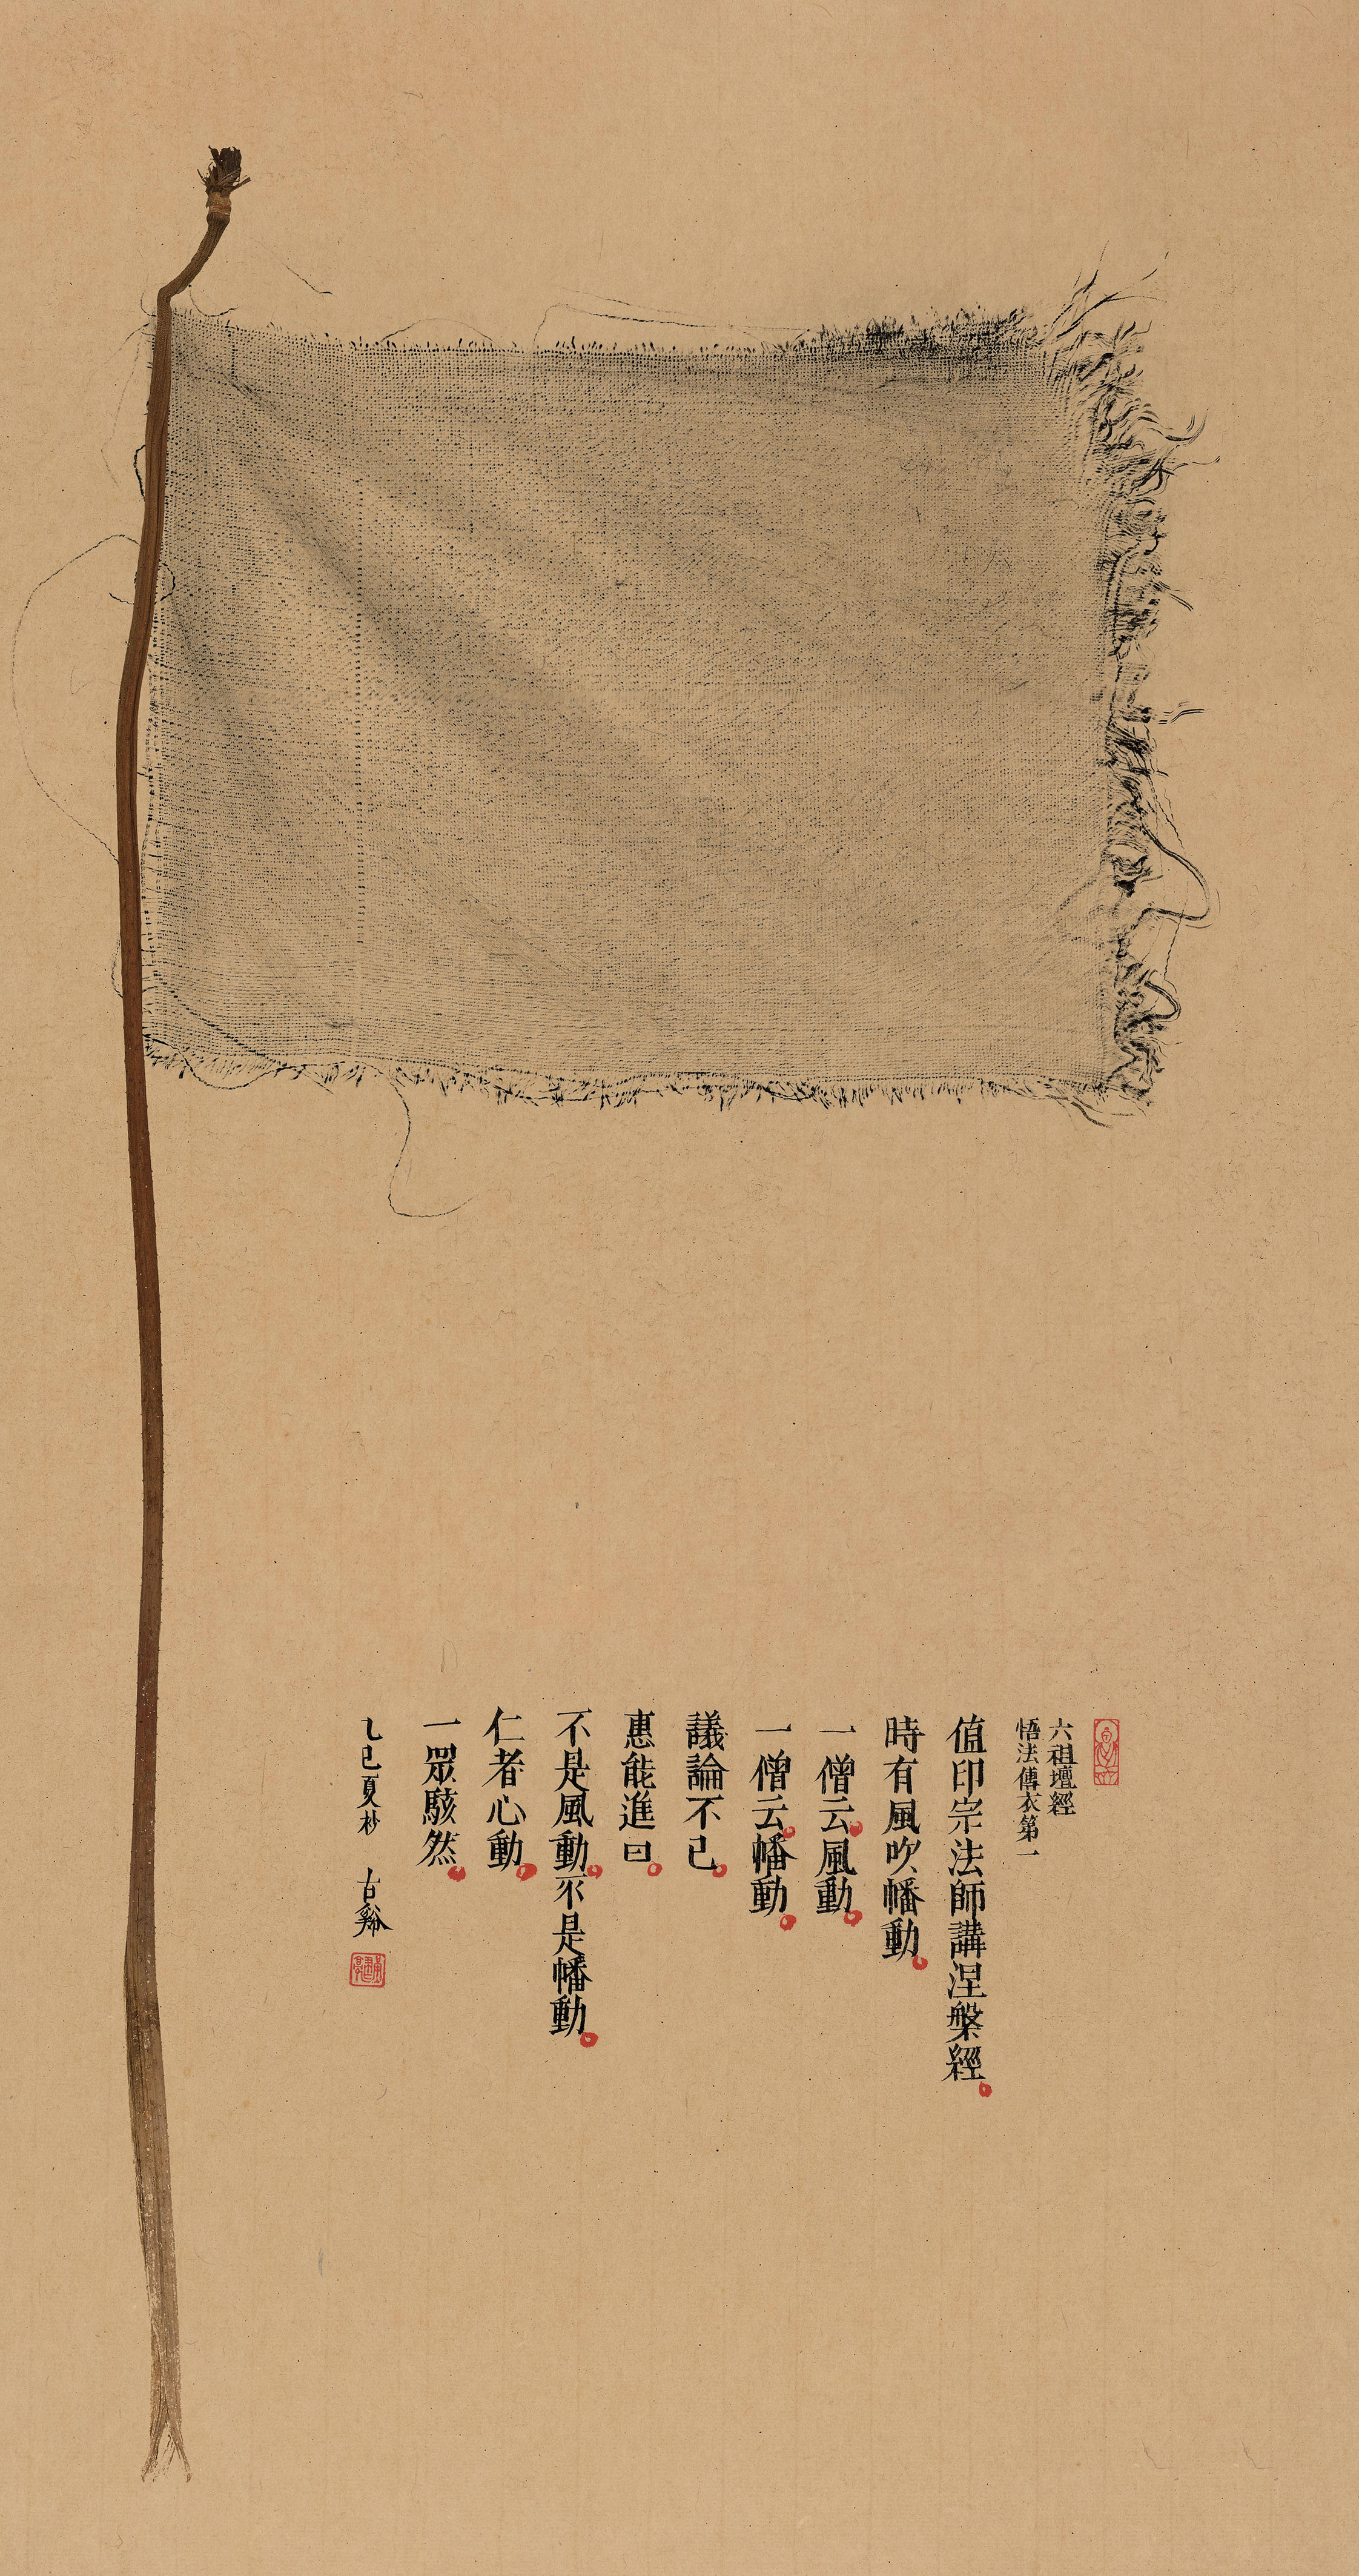 六祖壇經
悟法傳衣第一
值印宗法師講涅槃經。
時有風吹幡動。
一僧云。風動。
一僧云。幡動。
議論不已。
惠能進曰。
不是風動。不是幡動。
仁者心動。
一眾駭然。
乙巳夏杪 古谿